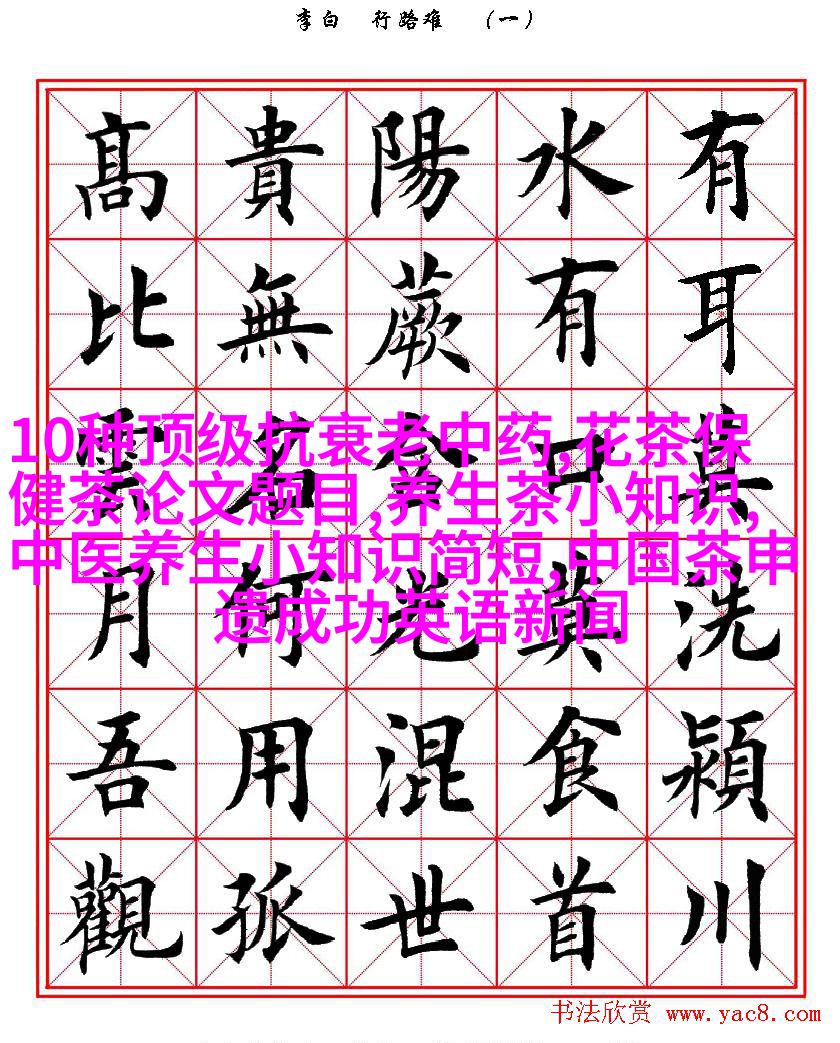 李白 行路难 （一）
有耳莫洗潁川
水有口莫食首
陽蕨含光混世
貴無名何用孤
髙比雲月吾觀
10种顶级抗衰老中药,花茶保
健茶论文题目,养生茶小知识,
中医养生小知识简短,中国茶申
遗成功英语新闻
书法欣赏 www.yac8.com